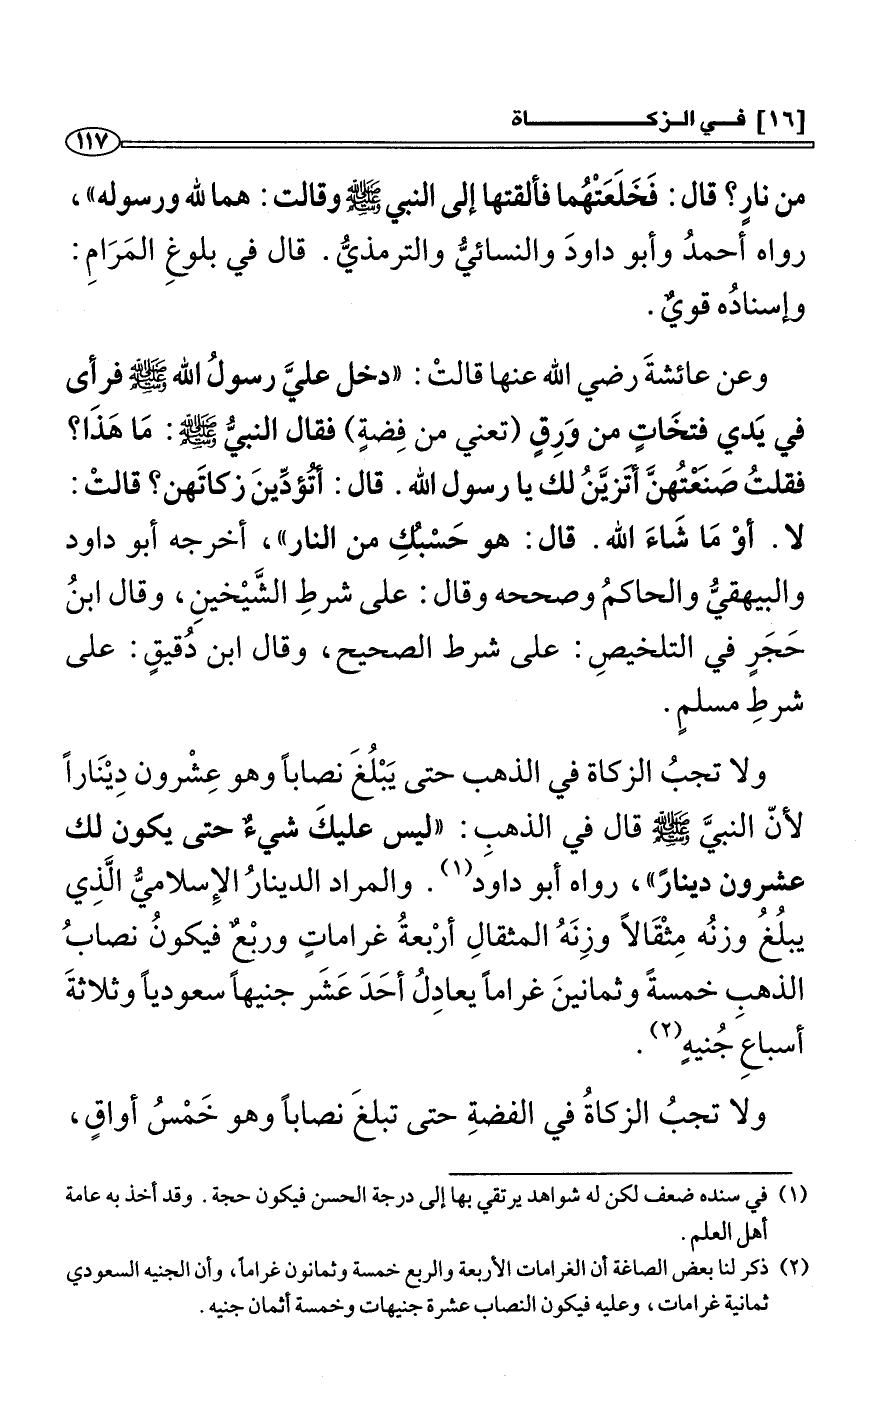 [١٦] في الزكـــــــــاة
١١٧
من نارٍ؟ قال: فَخَلَعَتْهُما فألقتها إلى النبي ﷺ وقالت: هما لله ورسوله»،
رواه أحمدُ وأبو داودَ والنسائيُّ والترمذيُّ. قال في بلوغِ المَرَامِ:
وإسنادُه قويٌ.
وعن عائشةَ رضي الله عنها قالتْ: «دخل عليَّ رسولُ الله ﷺ فرأى
في يَدي فتخَاتٍ من وَرِقٍ (تعني من فِضةٍ) فقال النبيُّ ﷺ: مَا هَذَا؟
فقلتُ صَنَعْتُهنَّ أتَزيَّنُ لك يا رسول الله. قال: أتُؤدِّينَ زكاتَهن؟ قالتْ:
لا. أوْ مَا شَاءَ الله. قال: هو حَسْبُكِ من النار»، أخرجه أبو داود
والبيهقيُّ والحاكمُ وصححه وقال: على شرطِ الشَّيْخينِ، وقال ابنُ
حَجَرٍ في التلخيصِ: على شرط الصحيح، وقال ابن دُقيقٍ: على
شرطِ مسلمٍ.
ولا تجبُ الزكاة في الذهب حتى يَبْلُغَ نصاباً وهو عِشْرون دِيْنَاراً
لأنّ النبيَّ ﷺ قال في الذهبِ: «ليس عليكَ شيءٌ حتى يكون لك
عشرون دينارً»، رواه أبو داود(١). والمراد الدينارُ الإسلاميُّ الَّذي
يبلُغُ وزنُه مِثْقَالاً وزِنَةُ المثقالِ أرْبعةُ غراماتٍ وربْعٌ فيكونُ نصابُ
الذهبِ خمسةً وثمانينَ غراماً يعادِلُ أحَدَ عَشَر جنيهاً سعودياً وثلاثةَ
أسباعِ جُنيهٍ(٢).
ولا تجبُ الزكاةُ في الفضةِ حتى تبلغَ نصاباً وهو خَمْسُ أواقٍ،
(١) في سنده ضعف لكن له شواهد يرتقي بها إلى درجة الحسن فيكون حجة. وقد أخذ به عامة
أهل العلم.
(٢) ذكر لنا بعض الصاغة أن الغرامات الأربعة والربع خمسة وثمانون غراماً، وأن الجنيه السعودي
ثمانية غرامات، وعليه فيكون النصاب عشرة جنيهات وخمسة أثمان جنيه.